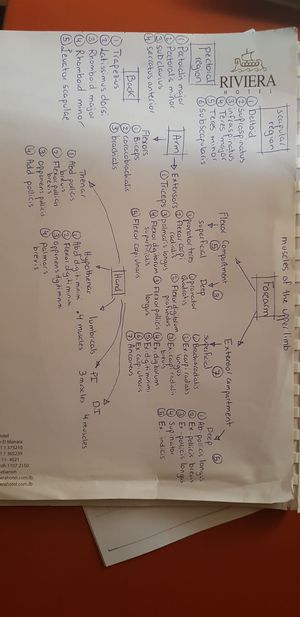 muscles of the upper limb
RIVIERA
HOTEL
Scapular region
① Deltoid
② Supraspinatus
③ infraspinatus
④ Teres major
⑤ Teres minor
⑥ Subscapularis
pectoral region
① Pectoralis major
② Pectoralis minor
③ subclavius
④ serratus anterior
Back
① Trapezius
② Latissimus dorsi
③ Rhomboid major
④ Rhomboid minor
⑤ Levator scapulae
Arm
Flexors
① Biceps
② coracobrachialis
③ brachialis
Extensors
① Triceps
Forearm
Flexor Compartment
superficial ⑤
① pronator teres
② Flexor carpi radialis
③ palmaris longus
④ Flexor digitorum superficialis
⑤ Flexor carpi ulnaris
Deep ③
① pronator quadratus
② Flexor digitorum profundus
③ Flexor pollicis longus
Extensor compartment
superficial ⑦
① brachioradialis
② Ex carpi radialis longus
③ Ex carpi radialis brevis
④ Ex digitorum
⑤ Ex digiti minimi
⑥ Ex carp ulnaris
⑦ Anconeus
Deep ⑤
① Ab pollicis longus
② Ex pollicis brevis
③ Ex pollicis longus
④ Supinator
⑤ Ex. indicis
Hand
Thenar
① Abd pollicis brevis
② Flexor pollicis brevis
③ Opponent pollicis
④ Add pollicis
Hypothenar
① Abd digiti minimi
② Flexor digiti minimi
③ Opponens digiti minimi
④ palmaris brevis
lumbricals
4 muscles
P.I
3 muscles
D.I
4 muscles